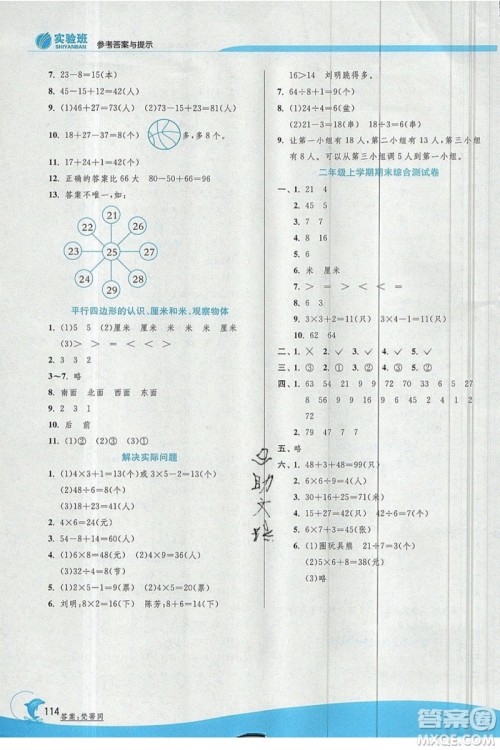 实验班
SHIYANBAN
参考答案与提示
7. 23-8=15(本)
8. 45-15+12=42(个)
9. (1)46+27=73(人) (2)46-31=15(人)
10. 18+27-37=8(个) 多,多8个。
11. 24+42-20=46(个)
12. 正确的答案比66大 80-50+66=96
13. 答案不唯一,如:
21
22 26
23 25 27
24 28
29
平行四边形的认识、厘米和米、观察物体
1. (1)5 5 (2)厘米 厘米 米 厘米 米
(3)> = < > < >
2. 3 3 2
3~7. 略
8. 南面 北面 西面 东面
10. 后 前
11. (1)② (2)③ (3)①
解决实际问题
1. (1)4×3+1=13(只)或3×5-2=13(只)
(2)48÷6=8(个)
(3)18+23=41(只)
2. 4×6=24(元)
3. 24÷4=6(元)
4. (1)32+16=48(元) (2)4×9=36(人)
(3)32÷4=8(个)
5. (1)30÷6=5(节) (2)4×5=20(人)
6. 刘明:8×2=16 陈芳:6+8=14
16>14 刘明跳得多。
7. 64÷8+1=9(根)
8. (1)24÷4=6(盆)
(2)18÷3=6(串) (3)21-18=3(串)
9. 让第一小组有18人,第二小组有13人,第三小组有8人,可以从第一小组调5人到第三小组。
二年级上学期期末综合测试卷
一、1. 21 4
2. 5 4
3. 7 7
6. 米 厘米
7. > = < > > <
8. < > > =
9. 3×3+2=11(只) 3×4-1=11(只)
10. 62 64
二、1. × 2. ✓ 3. ✓ 4. × 5. ✓
三、1. ③ 2. ① 3. ① 4. ③ 5. ②
五、略
六、1. 48+3+48=99(只)
3. 10+15-13=12(人)
5. 6×7+3=45(张)
6. (1)圈玩具熊
(2)5×6÷3=10(个)
(3)略
114
答案:尧蒂冈
答案圈
MXQE.COM